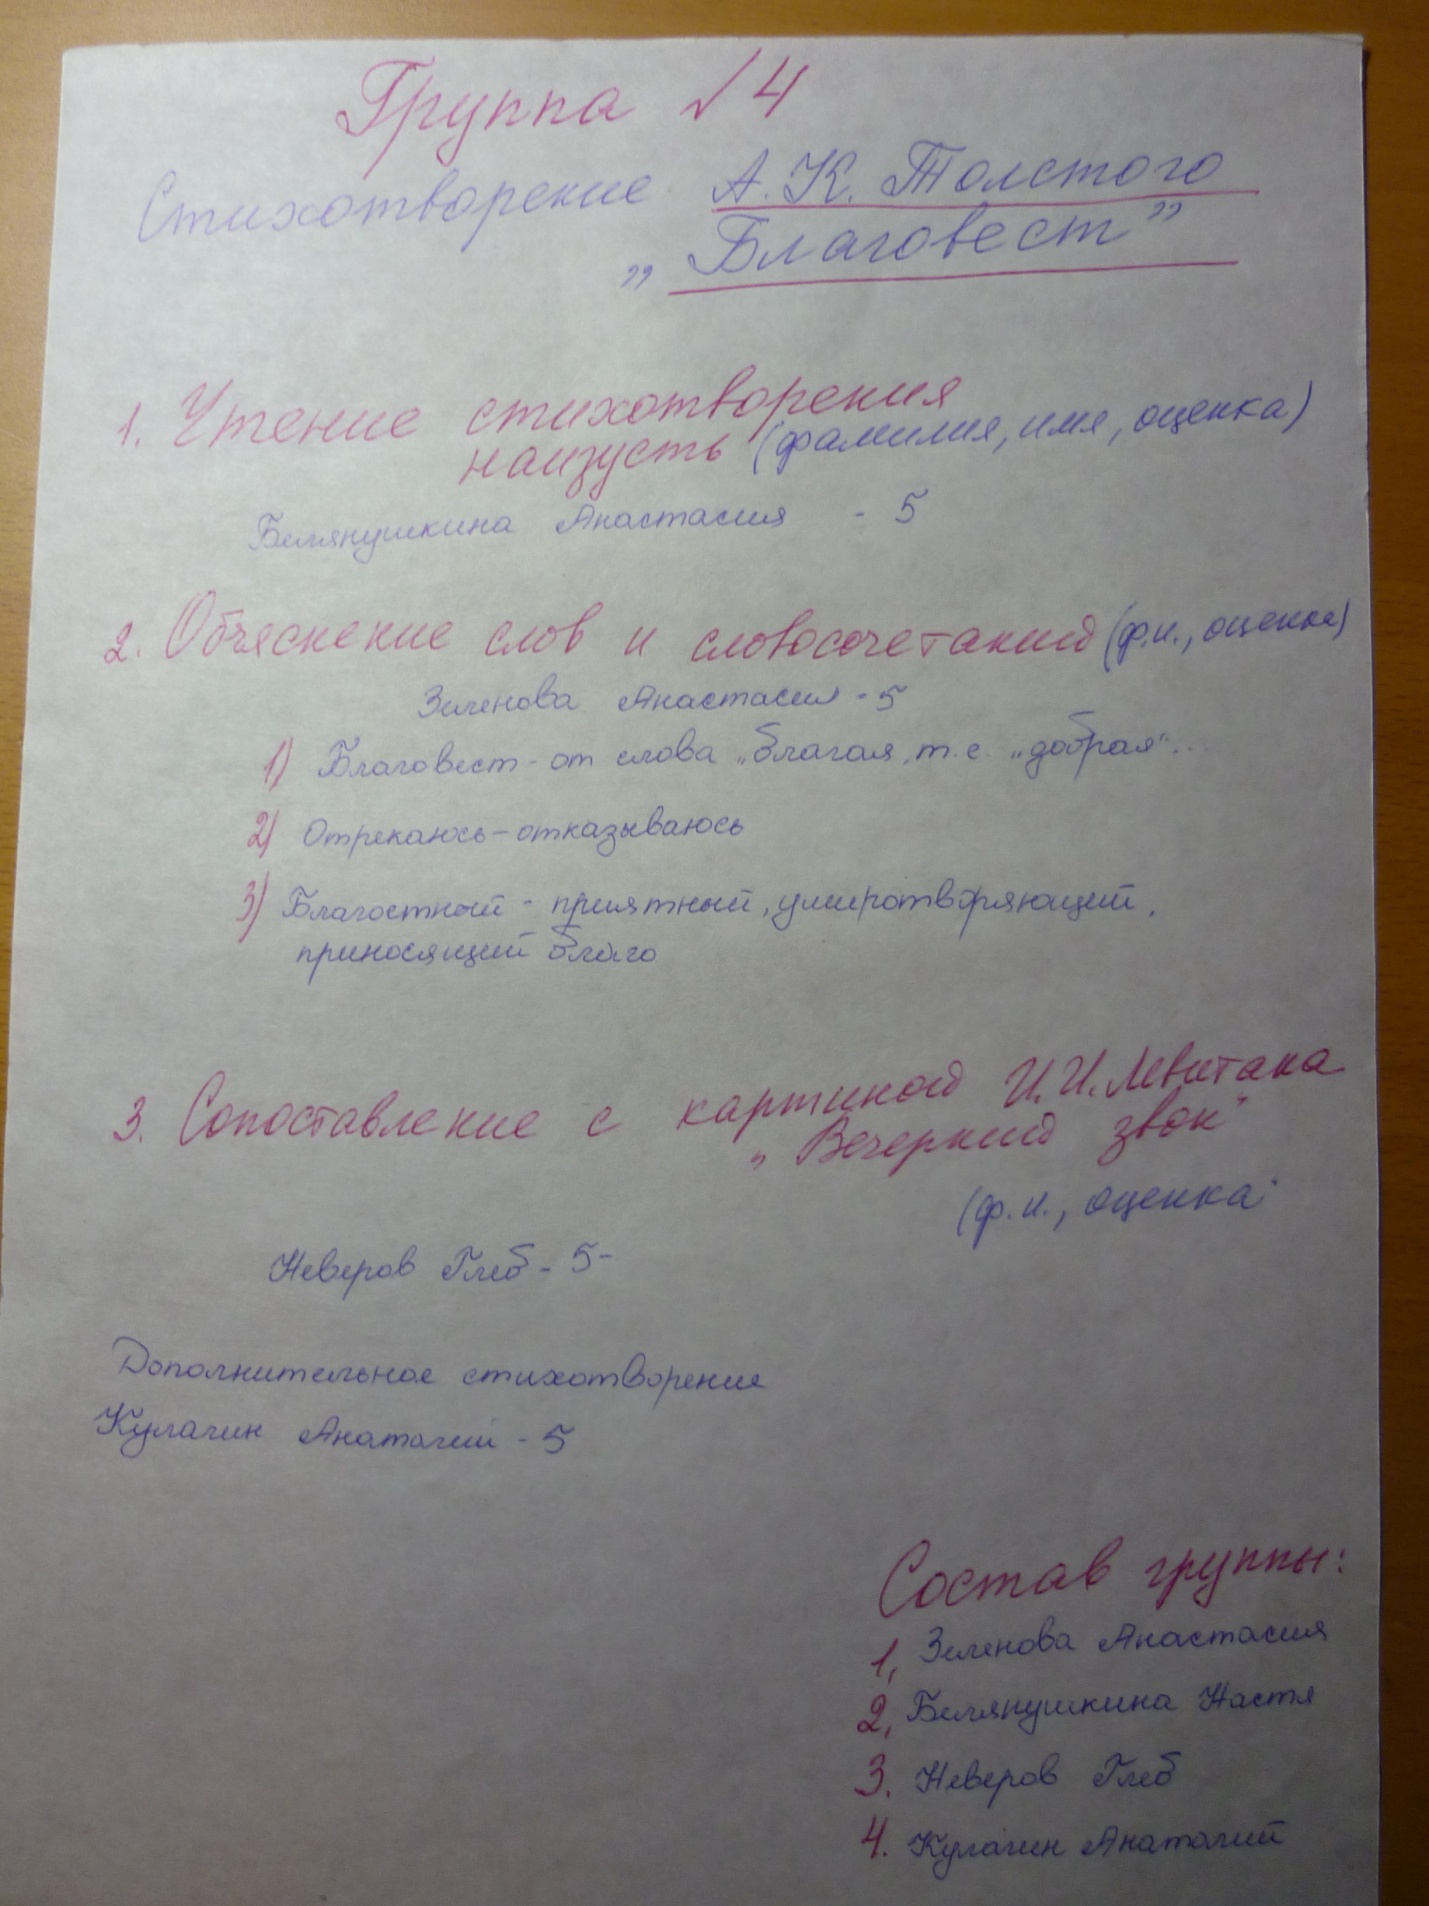 Группа №4
Стихотворение А.К. Толстого
„Благовест”
1. Чтение стихотворения
наизусть (фамилия, имя, оценка)
Белянушкина Анастасия - 5
2. Объяснение слов и словосочетаний (ф.и., оценка)
Зеленова Анастасия - 5
1) Благовест - от слова „благая, т.е. „добрая“...
2) Отрекаюсь - отказываюсь
3) Благостный - приятный, умиротворяющий,
приносящий благо
3. Сопоставление с картиной И.И. Левитана
„Вечерний звон“
(ф.и., оценка
Неверов Глеб - 5-
Дополнительное стихотворение
Кулагин Анатолий - 5
Состав группы:
1, Зеленова Анастасия
2, Белянушкина Настя
3. Неверов Глеб
4. Кулагин Анатолий